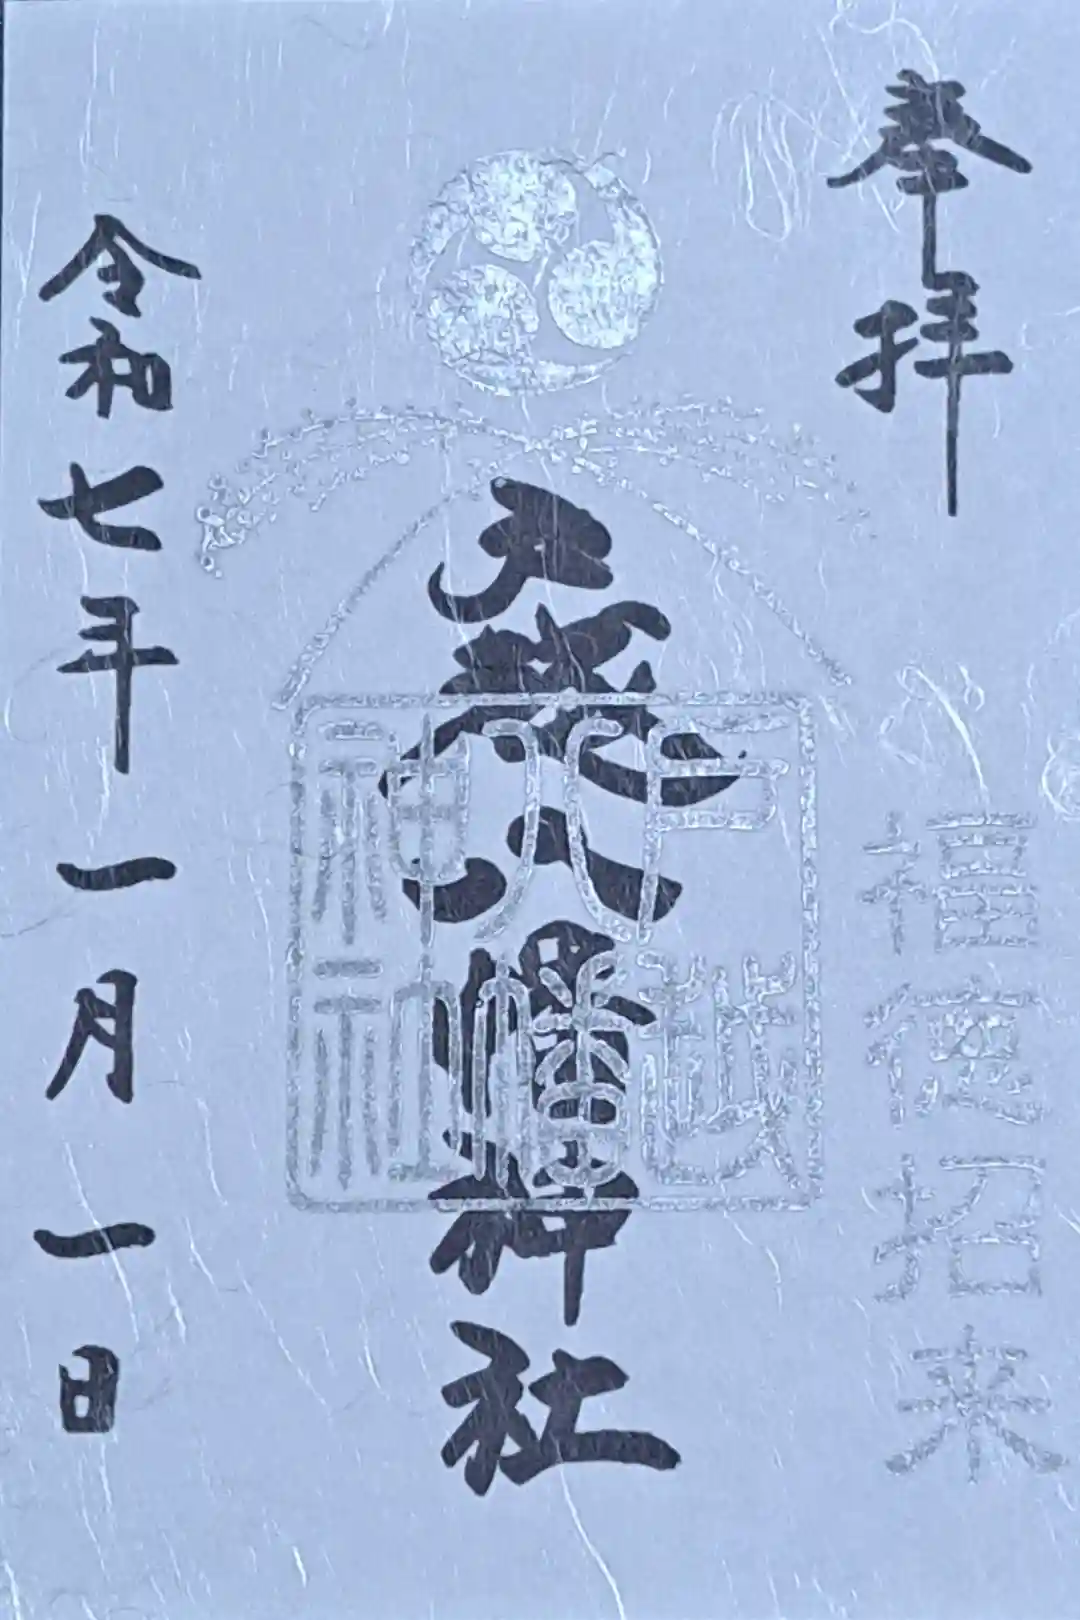 奉拝
福徳招来
戸越八幡神社
戸越
八幡
神社
令和七年一月一日